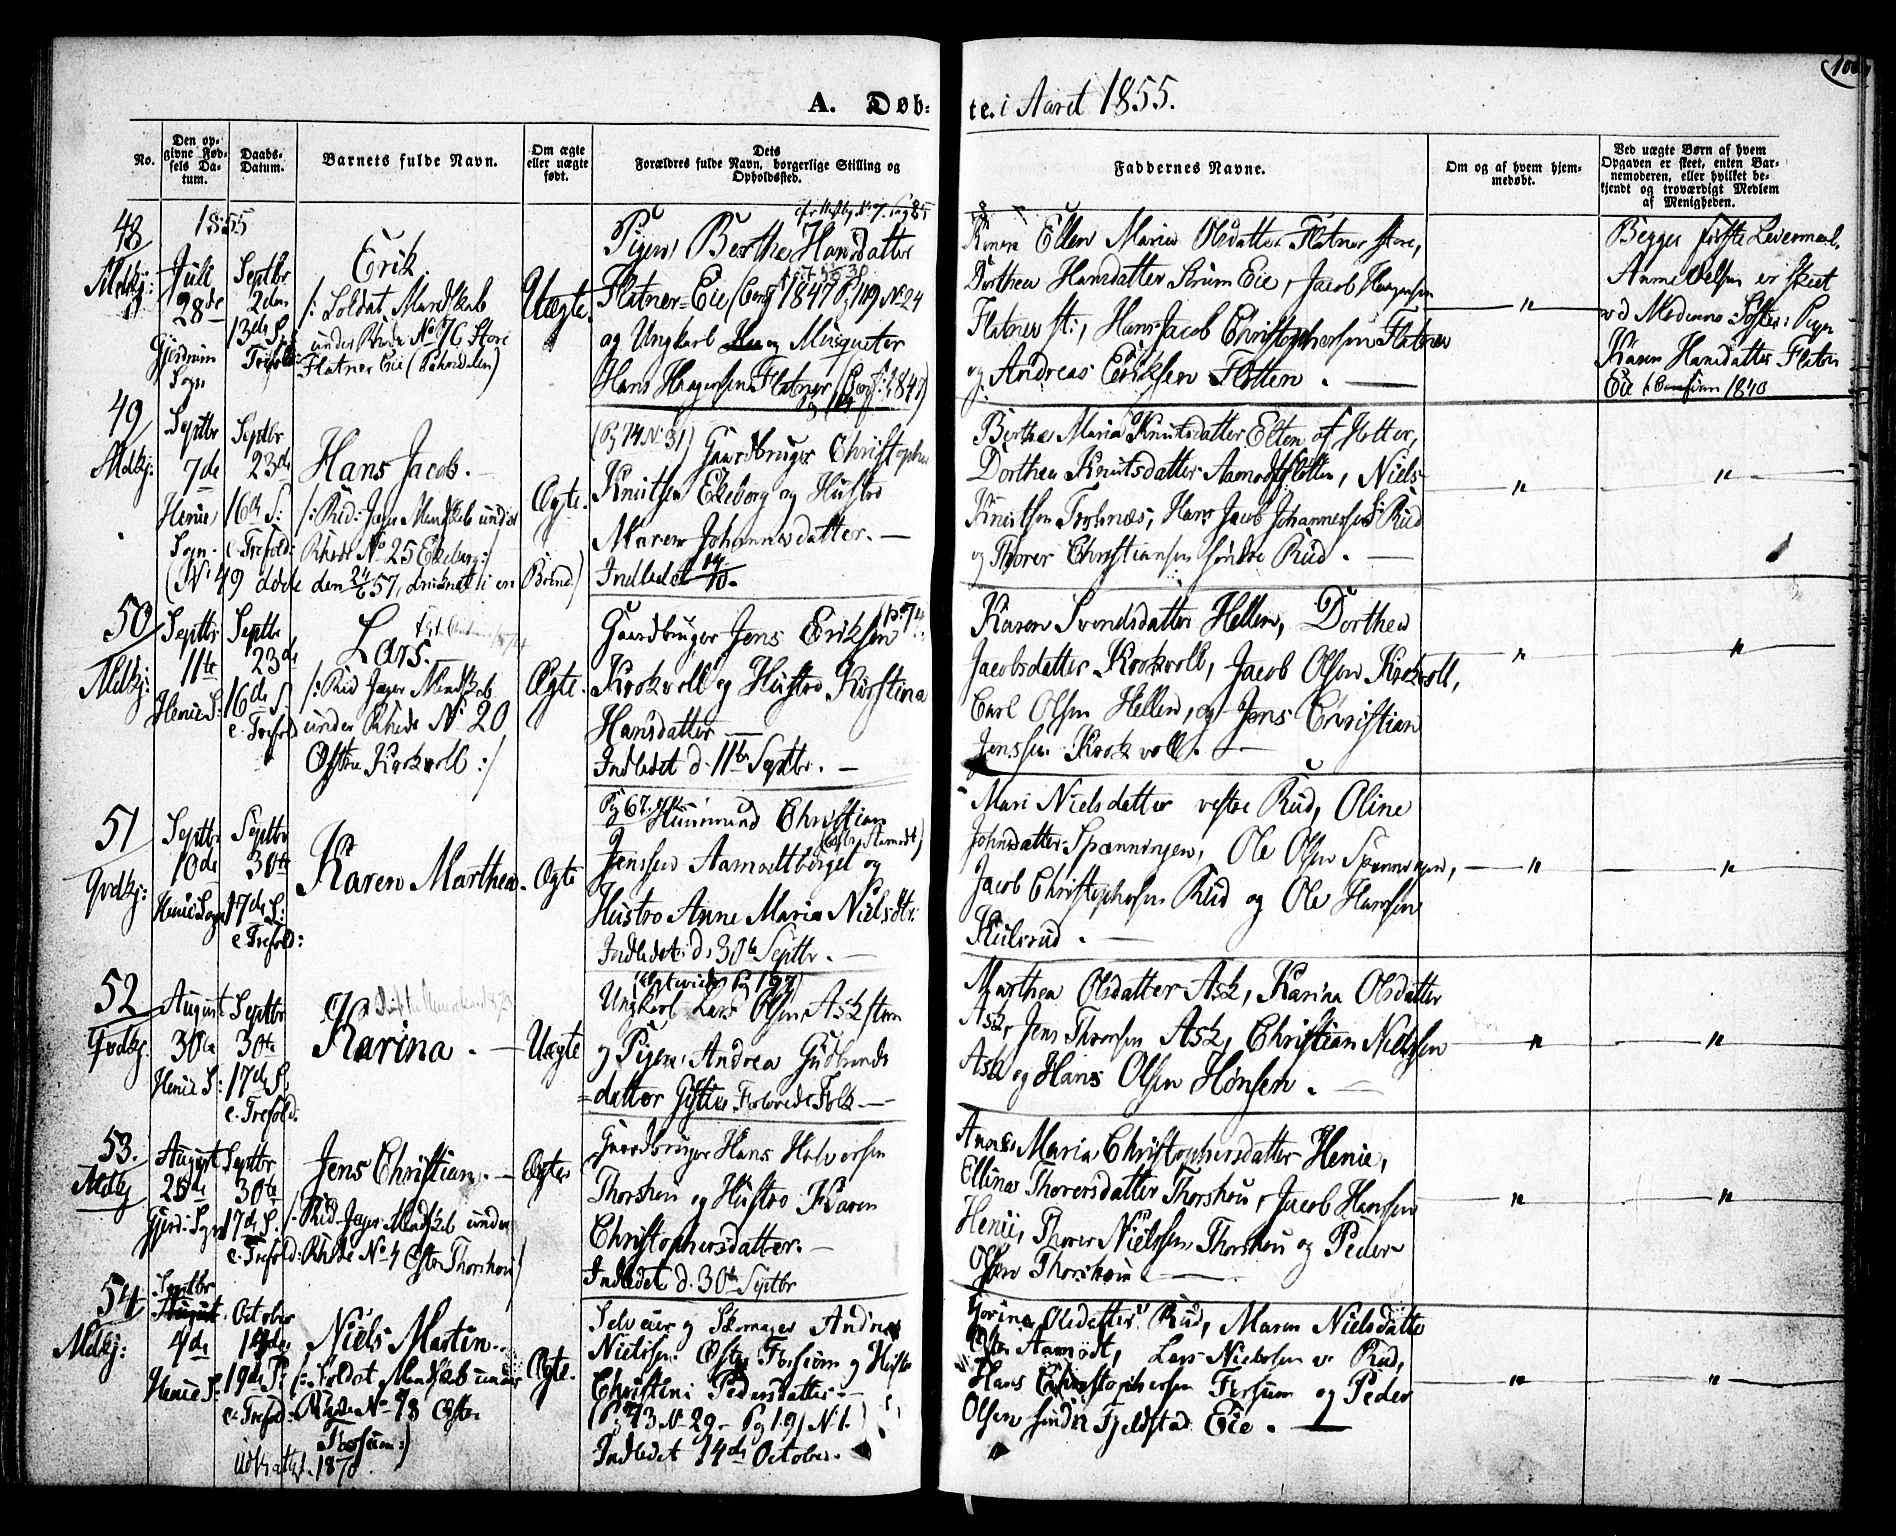 A. Døb-
te. i Aaret 1855.
No.
Den op-
givne Fød-
sels Da-
tum.
Daabs-
Datum.
Barnets fulde Navn.
Om ægte
eller uægte
født.
Dets
Forældres fulde Navn, borgerlige Stilling og
Opholdssted.
Faddernes Navne.
Om og af hvem hjem-
medøbt.
Ved uægte Børn af hvem
Opgaven er skeet, enten Bar-
nemoderen, eller hvilket be-
kjendt og troværdigt Medlem
af Menigheden.
48
Mdkj:
1855
Juli
28de
Gjerdrum
Sogn
Septbr
2den
13de S.
Trefold:
Erik
/: Soldat Mandskab
under Rhode No 76 Store
Flatner Eie
Uægte.
Pigen Berthe Hansdatter
Flatner-Eie (Conf 1847 Pg 119 No 24
og Ungkarl og Musqueter
Hans Haagensen Flatner (Conf: 1841)
Ellen Maria Olsdatter Flatner store,
Dorthea Hansdatter Eie, Jacob Haagensen
Flatner st:, Hans Jacob Christophersen Flatner
og Andreas Eriksen Flotten. —
"
Begges første Leiermaal.
Anmeldelsen er skeet
ved Moderens Søster: Pigen
Karen Hansdatter Flatner
Eie 1840
49
Mdkj:
Septbr
7de
Henie
Sogn.
Septbr
23de
16de S:
e. Trefold:
Hans Jacob. —
/: Rid: Jæger Mandskab under
Rhode No 25 Ekeberg:/
(No 49 døde den 24/6 57, druknet i en Brønd.)
Ægte.
(Pg 74 No 31) Gaardbruger Christopher
Knutsen Ekeberg og Hustro
Maren Johannesdatter. —
Indledet 14/10.
Berthe Maria Knutsdatter Elton af Hotter,
Dorthea Knutsdatter Aamodt Flotten, Niels
Knutsen, Hans Jacob Johannessen Rud
og Thorer Christiansen søndre Rud. —
"
"
50
Mdkj:
Septbr
11te
Henie S:
Septbr
23de
16de S.
e. Trefold
Lars.
/: Rid Jæger Mandskab
under Rhode No 20
Østre Krokvoll :/
Ægte.
Gaardbruger Jens Eriksen
Krokvoll og Hustro Kirstina
Hansdatter —
Indledet d. 11te Septbr. —
Karen Svendsdatter Hellen, Dorthea
Jacobsdatter Krokvoll, Jacob Olsen Krokvoll,
Carl Olsen Hellen, og Jens Christian
Jenssen Krokvoll. —
"
"
51
Gvdkj:
Septbr
10de
Henie Sogn
Septbr
30te
17de S:
e. Trefold:
Karen Marthea.
Ægte
Pg 67. Huusmand Christian
Jenssen Aamodtberget og
Hustro Anne Maria Nielsdtr.
Indledet d. 30te Septbr. —
Mari Nielsdatter vestre Rud, Oline
Johnsdatter Spænningen, Ole Olsen Spænningen,
Jacob Christophersen Rud og Ole Hansen
Kulsrud. —
"
"
52
Gvdkj.
August
30te
Henie S:
Septbr
30te
17de S.
e. Trefold.
Karina. —
Uægte
Ungkarl Lars Olsen Ask
og Pigen Andrea Gudbrands
=datter
Marthea Olsdatter Ask, Karina Olsdatter
Ask, Jens Thoresen Ask, Christian Nielsen
Ask og Hans Olsen Hønsen. —
"
"
53.
Mdkj
August
25de
Gjerd: Sogn
Septbr
30te
17de S.
e. Trefold:
Jens Christian. —
/: Rid. Jæger Mandskab under
Rhode No 4 Østre Thorshou /
Ægte
Gaardbruger Hans Halvorsen
Thorshou og Hustro Karen
Christophersdatter. —
Indledet d. 30te Septbr
Anne Maria Christophersdatter Henie,
Ellina Thorersdatter Thorshou, Jacob Hansen
Henie, Thorer Nielsen Thorshou og Peder
Olsen Thorshou. —
"
"
54
Mdkj:
Septbr
August
4de
Henie S:
October
14de
19de S.
e. Trefold:
Niels Martin.
/: Soldat Mandskab under
Rhode No 78 Østre
Fossum :)
Udfl attest. 1870.
Ægte.
Selveier og Skomager Andreas
Nielssen Østre Fossum og Hustro
Christine Pedersdatter —
(Pg 73 No 29 — Pg 191 No 1.)
Indledet 14de October.
Olsdatter Rud, Maren Nielsdatter
Østre Aamodt, Lars Nielssen v. Rud,
Hans Christophersen Fossum og Peder
Olsen Fjeldstad Eie. —
"
"